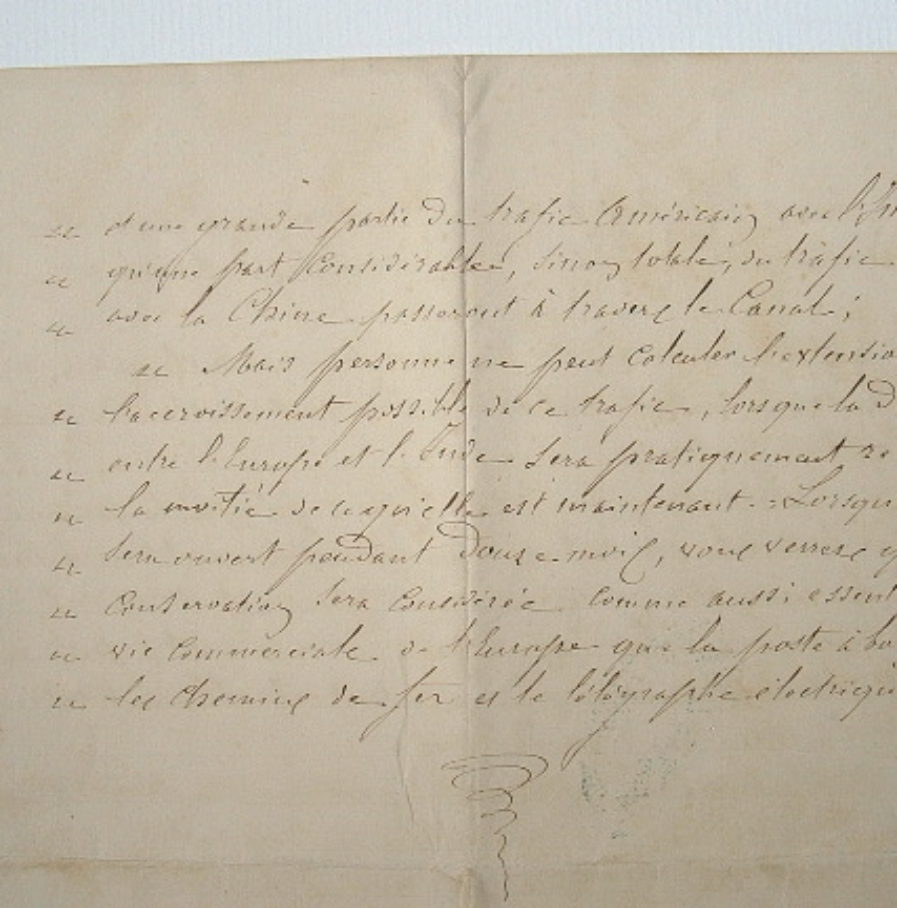 « d'une grande partie du trafic Américain avec l'In
« qu'une part considérable, sinon totale, du trafic
« avec la Chine passeront à travers le Canal;
« Mais personne ne peut calculer l'extensio
« l'accroissement possible de ce trafic, lorsque la d
« entre l'Europe et l'Inde sera pratiquement re
« la moitié de ce qu'elle est maintenant. Lorsqu
« sera ouvert pendant douze mois, vous verrez q
« conservation sera considérée comme aussi essent
« vie commerciale de l'Europe que la poste à bo
« les chemins de fer et le télégraphe électriqu